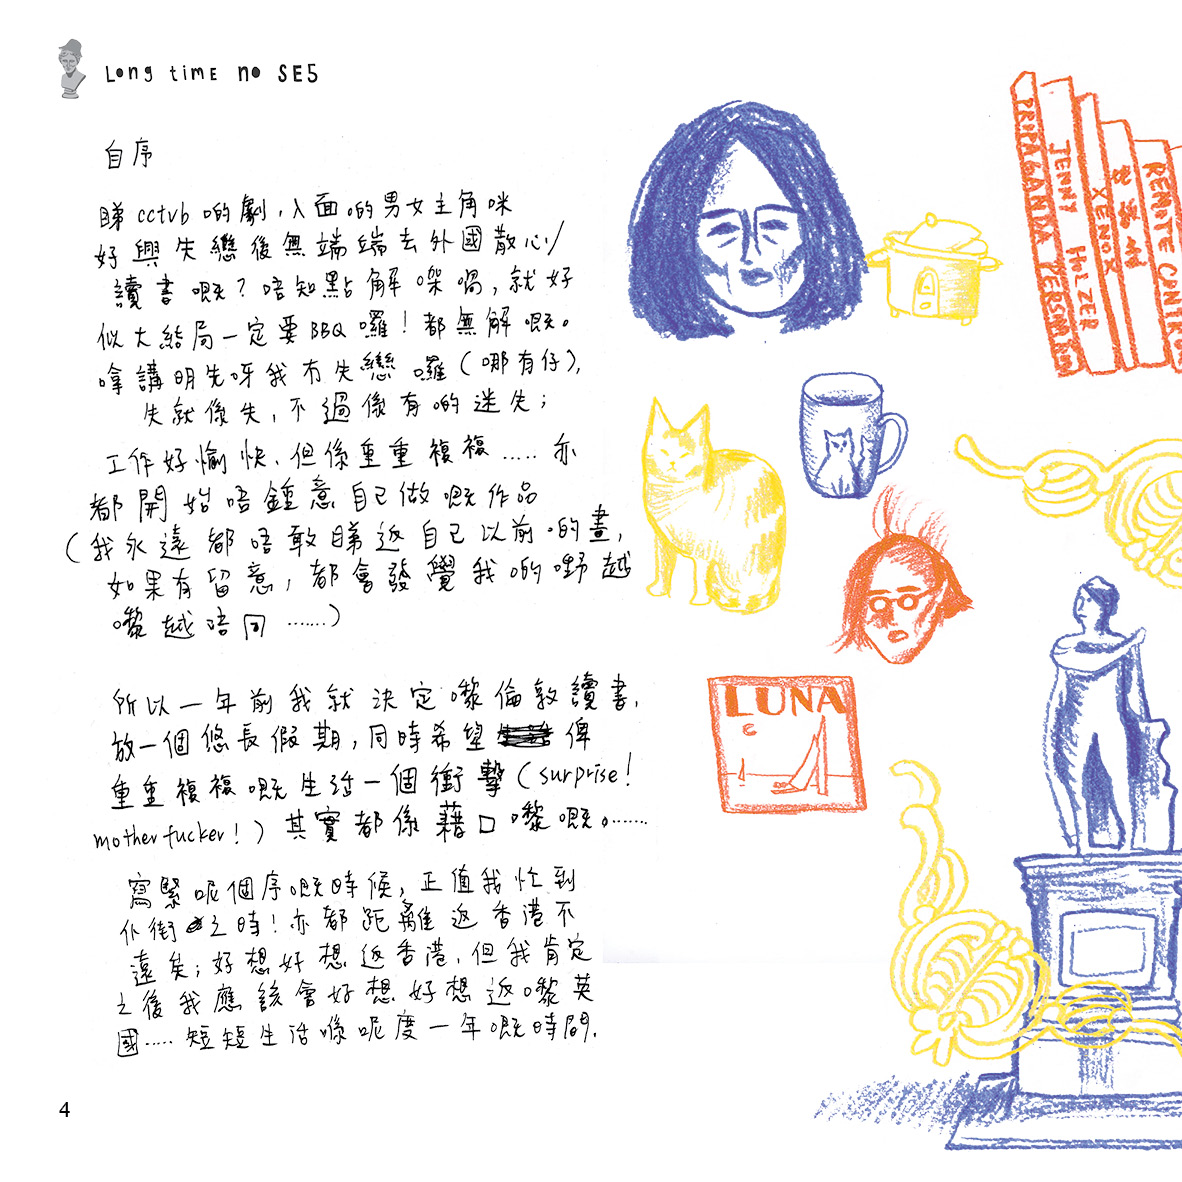 Long time no SE5
自序
睇cctvb啲劇，入面啲男女主角咪
好興失戀後無端端去外國散心/
讀書嘅？唔知點解㗎喎，就好
似大結局一定要BBQ囉！都無解嘅。
嗱講明先呀我冇失戀囉（哪有仔），
失就係失，不過係有啲迷失；
工作好愉快，但係重重複複……亦
都開始唔鍾意自己做嘅作品
（我永遠都唔敢睇返自己以前啲畫，
如果有留意，都會發覺我啲嘢越
嚟越唔同……）
所以一年前我就決定嚟倫敦讀書，
放一個悠長假期，同時希望俾
重重複複嘅生活一個衝擊（surprise!
motherfucker!）其實都係藉口嚟嘅。……
寫緊呢個序嘅時候，正值我忙到
仆街之時！亦都距離返香港不
遠矣；好想好想返香港，但我肯定
之後我應該會好想好想返嚟英
國……短短生活喺呢度一年嘅時間．
PROPAGANDA
JENNY HOLZER
XENOX
REMOTE CONTROL
LUNA
4